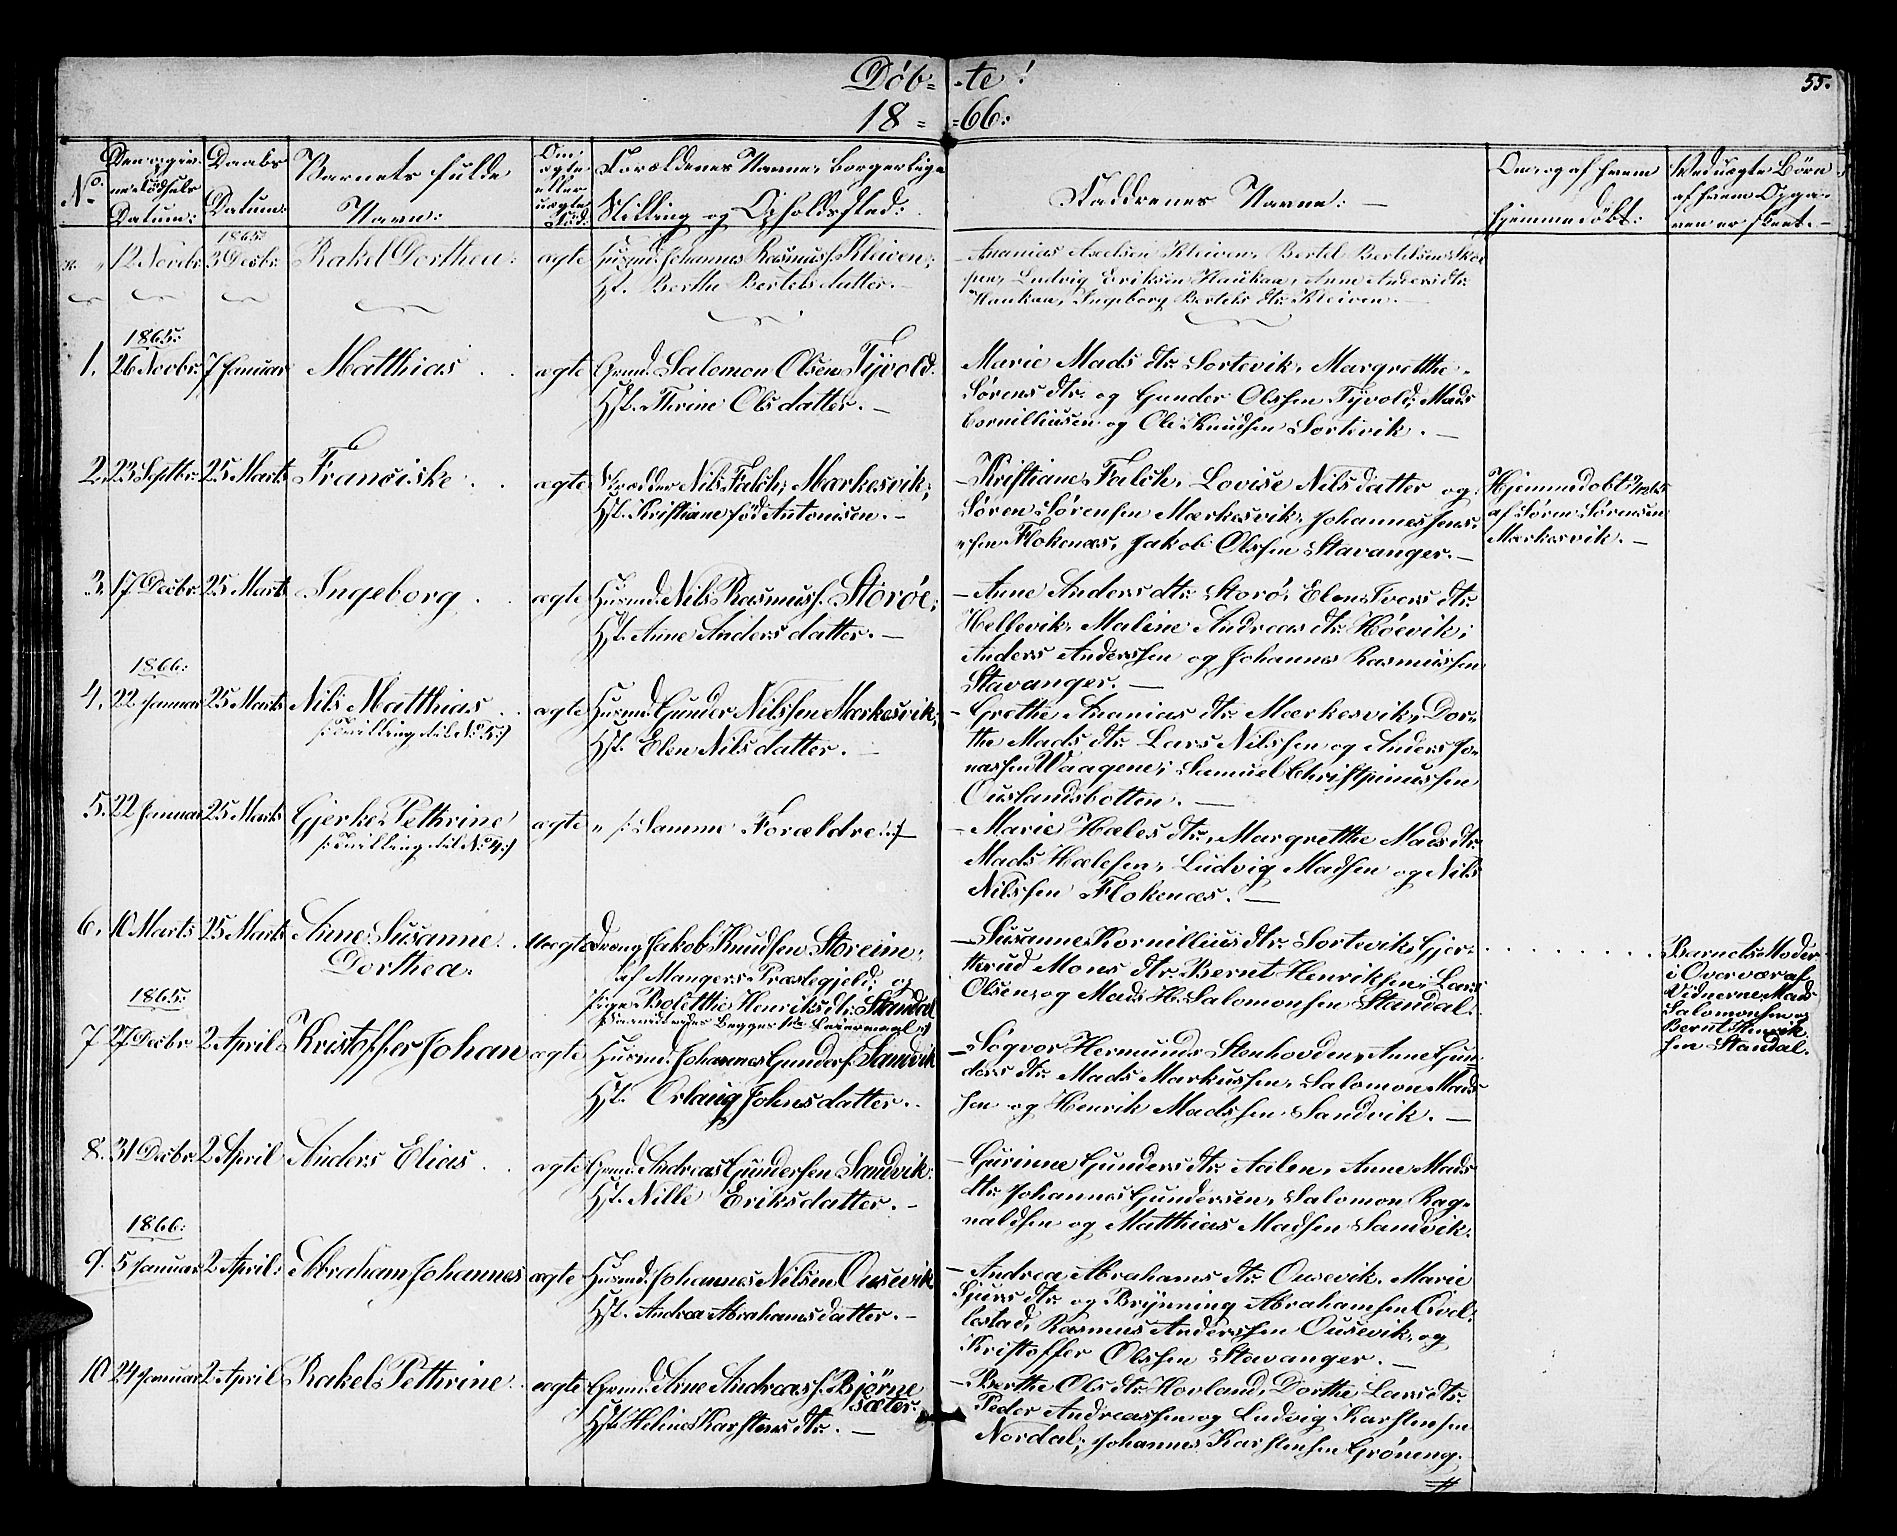 Döb= -te!
55.
18= =66:
No.
Den opgiv.
ne Födsels
Datum:
Daabs
Datum:
Barnets fulde
Navn:
Om
ægte
eller
uægte
Föd:
Forældrenes Navne, borgerlige
Stilling og Opholdssted:
Faddrenes Navne: —
Om og af hvem
hjemmedöbt:
Ved uægte Börn
af hvem Opga-
ven er skeet. —
12 Novbr.
1865:
3 Decbr.
Rakel Dorthea:
ægte
Husmd. Johannes Rasmuss. Kleiven;
Hst. Berthe Bertelsdatter. —
Ananias Axelsen Kleiven, Bertel Bertelsen Skor
pen, Ludvig Eriksen Haukaa, Anne Andersdtr.
Haukaa, Ingeborg Bertels dtr. Kleiven. —
1865:
1. 26 Novbr. 7 Januar Matthias ægte
Grmd. Salomon Olsen Tyvold.
Hst. Thrine Olsdatter. —
Marie Mads dtr. Sortevik, Margrethe
Sörens dtr. og Gunder Olssen Tyvold, Mads
Cornilliusen og Ole Knudsen Sortevik. —
2. 23 Septbr. 25 Marts Franciske ægte
Skrædder Nils Falch, Markesvik;
Hst. Kristiane föd Antonisen. —
— Kristiane Falch, Lovise Nilsdatter og
Sören Sörensen Mærkesvik, Johannes Jens-
sen Flokenæs, Jakob Olssen Stavanger. —
Hjemmedöbt
af Sören Sörensen
Mærkesvik. —
3. 17 Decbr. 25 Marts Ingeborg ægte
Husmd. Nils Rasmuss. Storöe;
Hst. Anne Andersdatter. —
— Anne Anders dtr. Storö, Elen Ivers dtr.
Hellevik, Maline Andreas dtr. Höevik;
Anders Anderssen og Johannes Rasmussen
Stavanger. —
1866:
4. 22 Januar 25 Marts Nils Matthias ægte
/: Tvilling til No. 5:/
Husmd. Gunder Nilssen Mærkesvik;
Hst. Elen Nilsdatter. —
— Grethe Ananias dtr. Mærkesvik, Dor-
the Mads dtr. Lars Nilssen og Anders Jo-
nassen Waagene; Samuel Christpinussen
Ouslandsbotten. —
5. 22 Januar 25 Marts Gjerke Pethrine ægte
/: Tvilling til No. 4:/
" /: Samme Forældre :/
— Marie Hæles dtr. Margrethe Mads dtr.
Mads Hælesen, Ludvig Madsen og Nils
Nilssen Flokenæs. —
6. 10 Marts 25 Marts Anne Susanne
Dorthea.
Uægte
Dreng Jakob Knudsen Storeim,
af Mangers Præstegjeld, og
Pige Bolethe Henriks dtr. Standal
/: Begges 1ste Leiermaal :/
— Susanne Kornillius dtr. Sortevik, Gjer-
therud Mons dtr. Bernt Henriksen, Lars
Olsen, og Mads H. Salomonsen Standal.
Barnets Moder
i Overvær af
Vidnerne Mads
Salomonsen og
Bernt Henrik-
sen Standal.
1865:
7 27 Decbr. 2 April Kristoffer Johan ægte
Husmd. Johannes Gunders. Sandvik
Hst. Orlaug Johnsdatter.
— Sögvor Hermunds Stenhovden, Anne Gun-
ders dtr. Mads Markussen, Salomon Mads-
sen og Henrik Madssen Sandvik. —
8. 31 Decbr. 2 April Anders Elias ægte
Grmd. Andreas Gundersen Sandvik:
Hst. Nille Eriksdatter. —
— Gurinne Gunders dtr. Aalen, Anne Mads
dtr. Johannes Gundersen, Salomon Rag-
naldsen og Matthias Madsen Sandvik.
1866:
9. 5 Januar 2 April Abraham Johannes ægte
Husmd. Johannes Nilsen Ousevik
Hst. Andrea Abrahamsdatter. —
— Andrea Abrahams dtr. Ousevik, Marie
Sjurs dtr. og Brynning Abrahamsen Qvel-
lestad, Rasmus Anderssen Ousevik, og
Kristoffer Olssen Stavanger. —
10 24 Januar 2 April Rakel Pethrine ægte
Grmd. Arne Andreass. Björne
sæter.
Hst. Heline Karstens dtr. —
— Berthe Ols dtr. Hovland, Dorthe Lars dtr.
Peder Andreassen og Ludvig Karstensen
Nordal; Johannes Karstensen Gröneng.